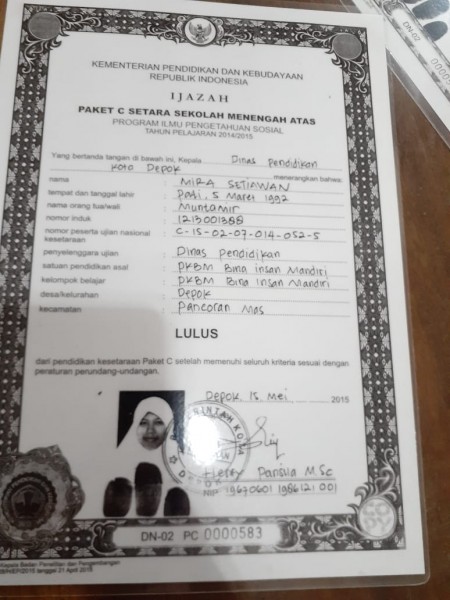 KEMENTERIAN PENDIDIKAN DAN KEBUDAYAAN
REPUBLIK INDONESIA
IJAZAH
PAKET C SETARA SEKOLAH MENENGAH ATAS
PROGRAM ILMU PENGETAHUAN SOSIAL
TAHUN PELAJARAN 2014/2015
Yang bertanda tangan di bawah ini, Kepala Dinas Pendidikan
Kota Depok menerangkan bahwa:
nama : MIRA SETIAWAN
tempat dan tanggal lahir : Pati, 5 Maret 1992
nama orang tua/wali : Muntamir
nomor induk : 1213001388
nomor peserta ujian nasional : C-15-02-07-014-052-5
kesetaraan
penyelenggara ujian : Dinas Pendidikan
satuan pendidikan asal : PKBM Bina Insan Mandiri
kelompok belajar : PKBM Bina Insan Mandiri
desa/kelurahan : Depok
kecamatan : Pancoran Mas
LULUS
dari pendidikan kesetaraan Paket C setelah memenuhi seluruh kriteria sesuai dengan
peraturan perundang-undangan.
Depok, 15 Mei 2015
M.Sc
NIP 19670601 1986121 001
DN-02 PC 0000583
COPY
Kepala Badan Penelitian dan Pengembangan
tanggal 21 April 2015
DN-02 0000